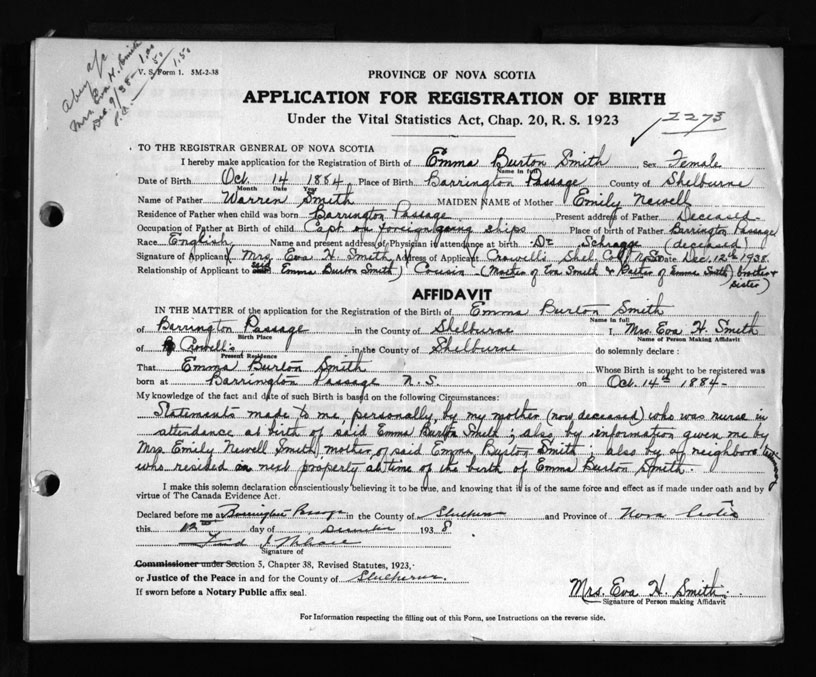 Mrs Eva H. Smith
Dec 9/38 - 1.00
.50
1.50
V. S. Form 1. 5M-2-38
PROVINCE OF NOVA SCOTIA
APPLICATION FOR REGISTRATION OF BIRTH
Under the Vital Statistics Act, Chap. 20, R. S. 1923
2273
TO THE REGISTRAR GENERAL OF NOVA SCOTIA
I hereby make application for the Registration of Birth of Emma Burton Smith Sex Female
Name in full
Date of Birth Oct. 14 1884 Place of Birth Barrington Passage County of Shelburne
Month Date Year
Name of Father Warren Smith MAIDEN NAME of Mother Emily Newell
Residence of Father when child was born Barrington Passage Present address of Father Deceased
Occupation of Father at Birth of child Capt on foreign going ships Place of birth of Father Barrington Passage
Race English Name and present address of Physician in attendance at birth Dr (deceased)
Signature of Applicant Mrs Eva H. Smith Address of Applicant Crowell's Shel. Co. N.S. Date Dec. 12th 1938
Relationship of Applicant to said Emma Burton Smith Cousin (Mother of Eva Smith & Father of Emma Smith) brother &
sister)
AFFIDAVIT
IN THE MATTER of the application for the Registration of the Birth of Emma Burton Smith
Name in full
of Barrington Passage in the County of Shelburne I, Mrs. Eva H. Smith
Birth Place Name of Person Making Affidavit
of Crowell's in the County of Shelburne do solemnly declare :
Present Residence
That Emma Burton Smith Whose Birth is sought to be registered was
born at Barrington Passage N.S. on Oct. 14th 1884-
My knowledge of the fact and date of such Birth is based on the following Circumstances:
Statement made to me, personally, by my mother (now deceased) who was nurse in
attendance at birth of said Emma Burton Smith; also, by information given me by
Mrs. Emily Newell Smith, mother of said Emma Burton Smith; also by neighbors
who resided on next property at time of the birth of Emma Burton Smith.
I make this solemn declaration conscientiously believing it to be true, and knowing that it is of the same force and effect as if made under oath and by
virtue of The Canada Evidence Act.
Declared before me at Barrington Passage in the County of Shelburne and Province of Nova Scotia
this 12th day of December 1938
Signature of
Commissioner under Section 5, Chapter 38, Revised Statutes, 1923,
or Justice of the Peace in and for the County of Shelburne.
If sworn before a Notary Public affix seal.
Mrs. Eva H. Smith
Signature of Person making Affidavit
For Information respecting the filling out of this Form, see Instructions on the reverse side.